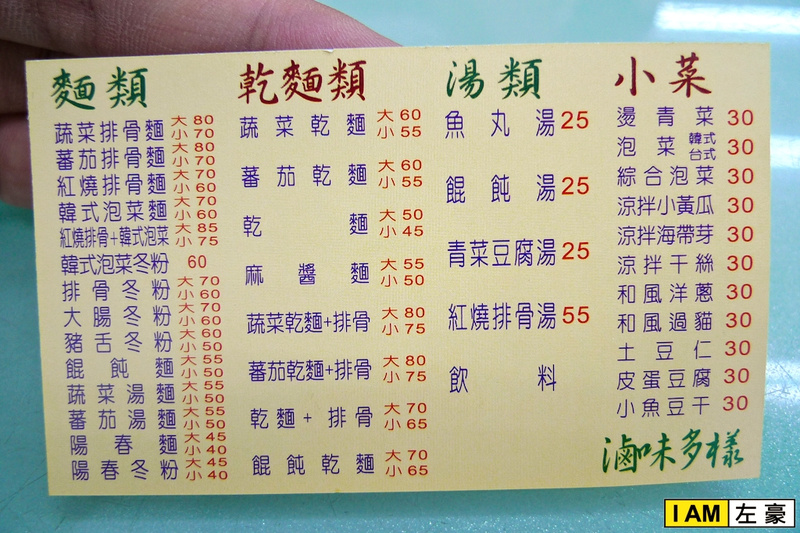 麵類
蔬菜排骨麵 大80 小70
蕃茄排骨麵 大80 小70
紅燒排骨麵 大70 小60
韓式泡菜麵 大70 小60
紅燒排骨+韓式泡菜 大85 小75
韓式泡菜冬粉 60
排骨冬粉 大70 小60
大腸冬粉 大70 小60
豬舌冬粉 大60 小50
餛飩麵 大55 小50
蔬菜湯麵 大55 小50
蕃茄湯麵 大55 小50
陽春麵 大45 小40
陽春冬粉 大45 小40
乾麵類
蔬菜乾麵 大60 小55
蕃茄乾麵 大60 小55
乾麵 大50 小45
麻醬麵 大55 小50
蔬菜乾麵+排骨 大80 小75
蕃茄乾麵+排骨 大80 小75
乾麵+排骨 大70 小65
餛飩乾麵 大70 小65
湯類
魚丸湯25
餛飩湯25
青菜豆腐湯25
紅燒排骨湯55
飲料
小菜
燙青菜 30
泡菜 韓式 台式 30
綜合泡菜 30
涼拌小黃瓜 30
涼拌海帶芽 30
涼拌干絲 30
和風洋蔥 30
和風過貓 30
土豆仁 30
皮蛋豆腐 30
小魚豆干 30
滷味多樣
I AM 左豪